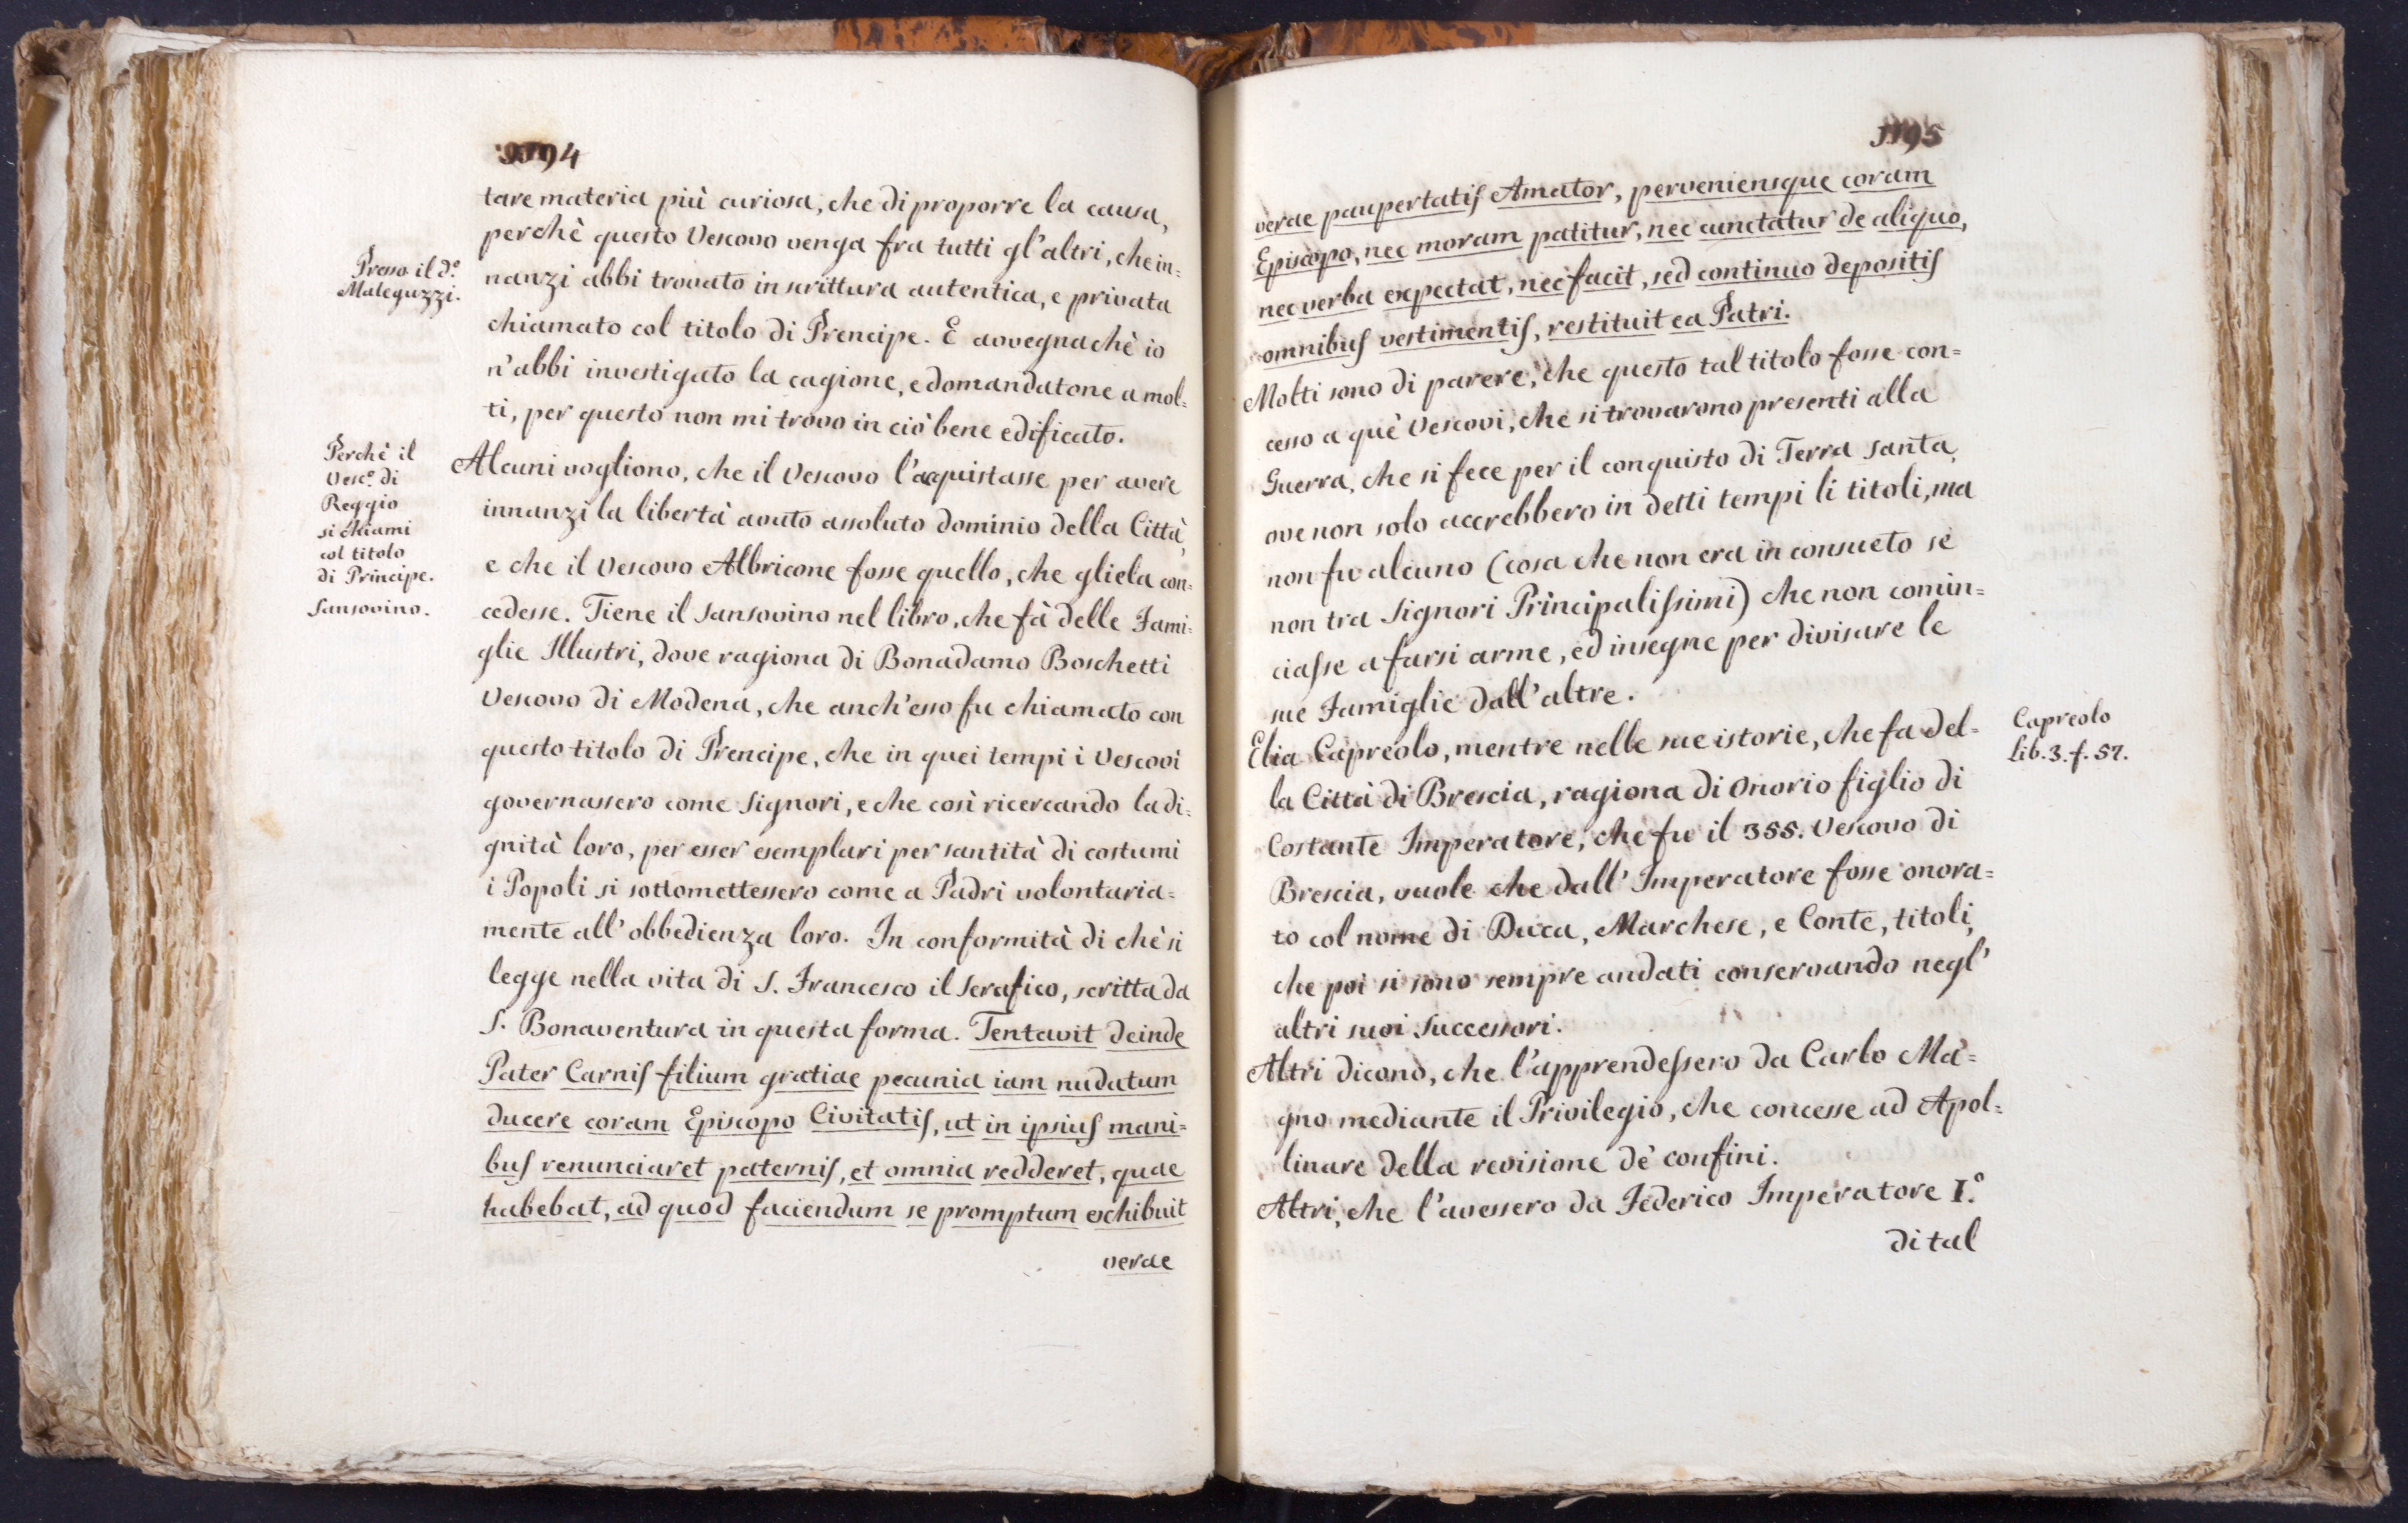 94
tare materia più curiosa, che di proporre la causa,
perchè questo Vescovo venga fra tutti gl'altri, che in=
Presso il d.º
Maleguzzi.
nanzi abbi trovato in scrittura autentica, e privata
chiamato col titolo di Prencipe. E avvegnachè io
n'abbi investigato la cagione, e domandatone a mol=
ti, per questo non mi trovo in ciò bene edificato.
Perchè il
Vesc.º di
Reggio
si chiami
col titolo
di Principe.
Sansovino.
Alcuni vogliono, che il Vescovo l'acquistasse per avere
innanzi la libertà avuto assoluto dominio della Città,
e che il Vescovo Albricone fosse quello, che gliela con=
cedesse. Tiene il Sansovino nel libro, che fà delle Fami=
glie Illustri, dove ragiona di Bonadamo Boschetti
Vescovo di Modena, che anch'esso fu chiamato con
questo titolo di Prencipe, che in quei tempi i Vescovi
governassero come Signori, e che così ricercando la di=
gnità loro, per esser esemplari per santità di costumi
i Popoli si sottomettessero come a Padri volontaria=
mente all'obbedienza loro. In conformità di chè si
legge nella vita di S. Francesco il Serafico, scritta da
S. Bonaventura in questa forma. Tentavit deinde
Pater Carnis filium gratiae pecunia iam nudatum
ducere coram Episcopo Civitatis, ut in ipsius mani=
bus renunciaret paternis, et omnia redderet, quae
habebat, ad quod faciendum se promptum exhibuit
verae
95
verae paupertatis Amator, perveniensque coram
Episcopo, nec moram patitur, nec cunctatur de aliquo,
nec verba expectat, nec facit, sed continuo depositis
omnibus vestimentis, restituit ea Patri.
Molti sono di parere, che questo tal titolo fosse con=
cesso a què Vescovi, che si trovarono presenti alla
Guerra, che si fece per il conquisto di Terra Santa,
ove non solo accrebbero in detti tempi li titoli, ma
non fu alcuno (cosa che non era in consueto se
non tra Signori Principalissimi) che non comin=
ciasse a farsi arme, ed insegne per divisare le
sue Famiglie dall'altre.
Elia Capreolo, mentre nelle sue istorie, che fa del=
Capreolo
Lib. 3. f. 57.
la Città di Brescia, ragiona di Onorio figlio di
Costante Imperatore, che fu il 355. Vescovo di
Brescia, vuole che dall'Imperatore fosse onora=
to col nome di Duca, Marchese, e Conte, titoli,
che poi si sono sempre andati conservando negl'
altri suoi Successori.
Altri dicono, che l'apprendessero da Carlo Ma=
gno mediante il Privilegio, che concesse ad Apol=
linare della revisione dè confini.
Altri, che l'avessero da Federico Imperatore I.º
di tal